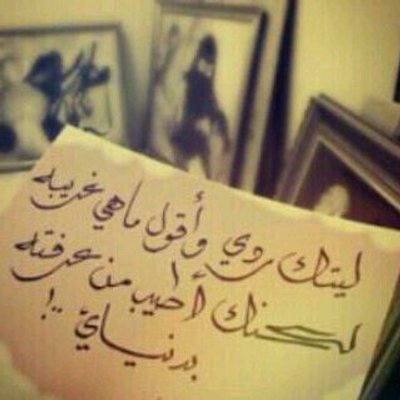 ليتك سوي وأقول ماهي غريبه
لكنك أحيب من عرفته
بدنياي ..!